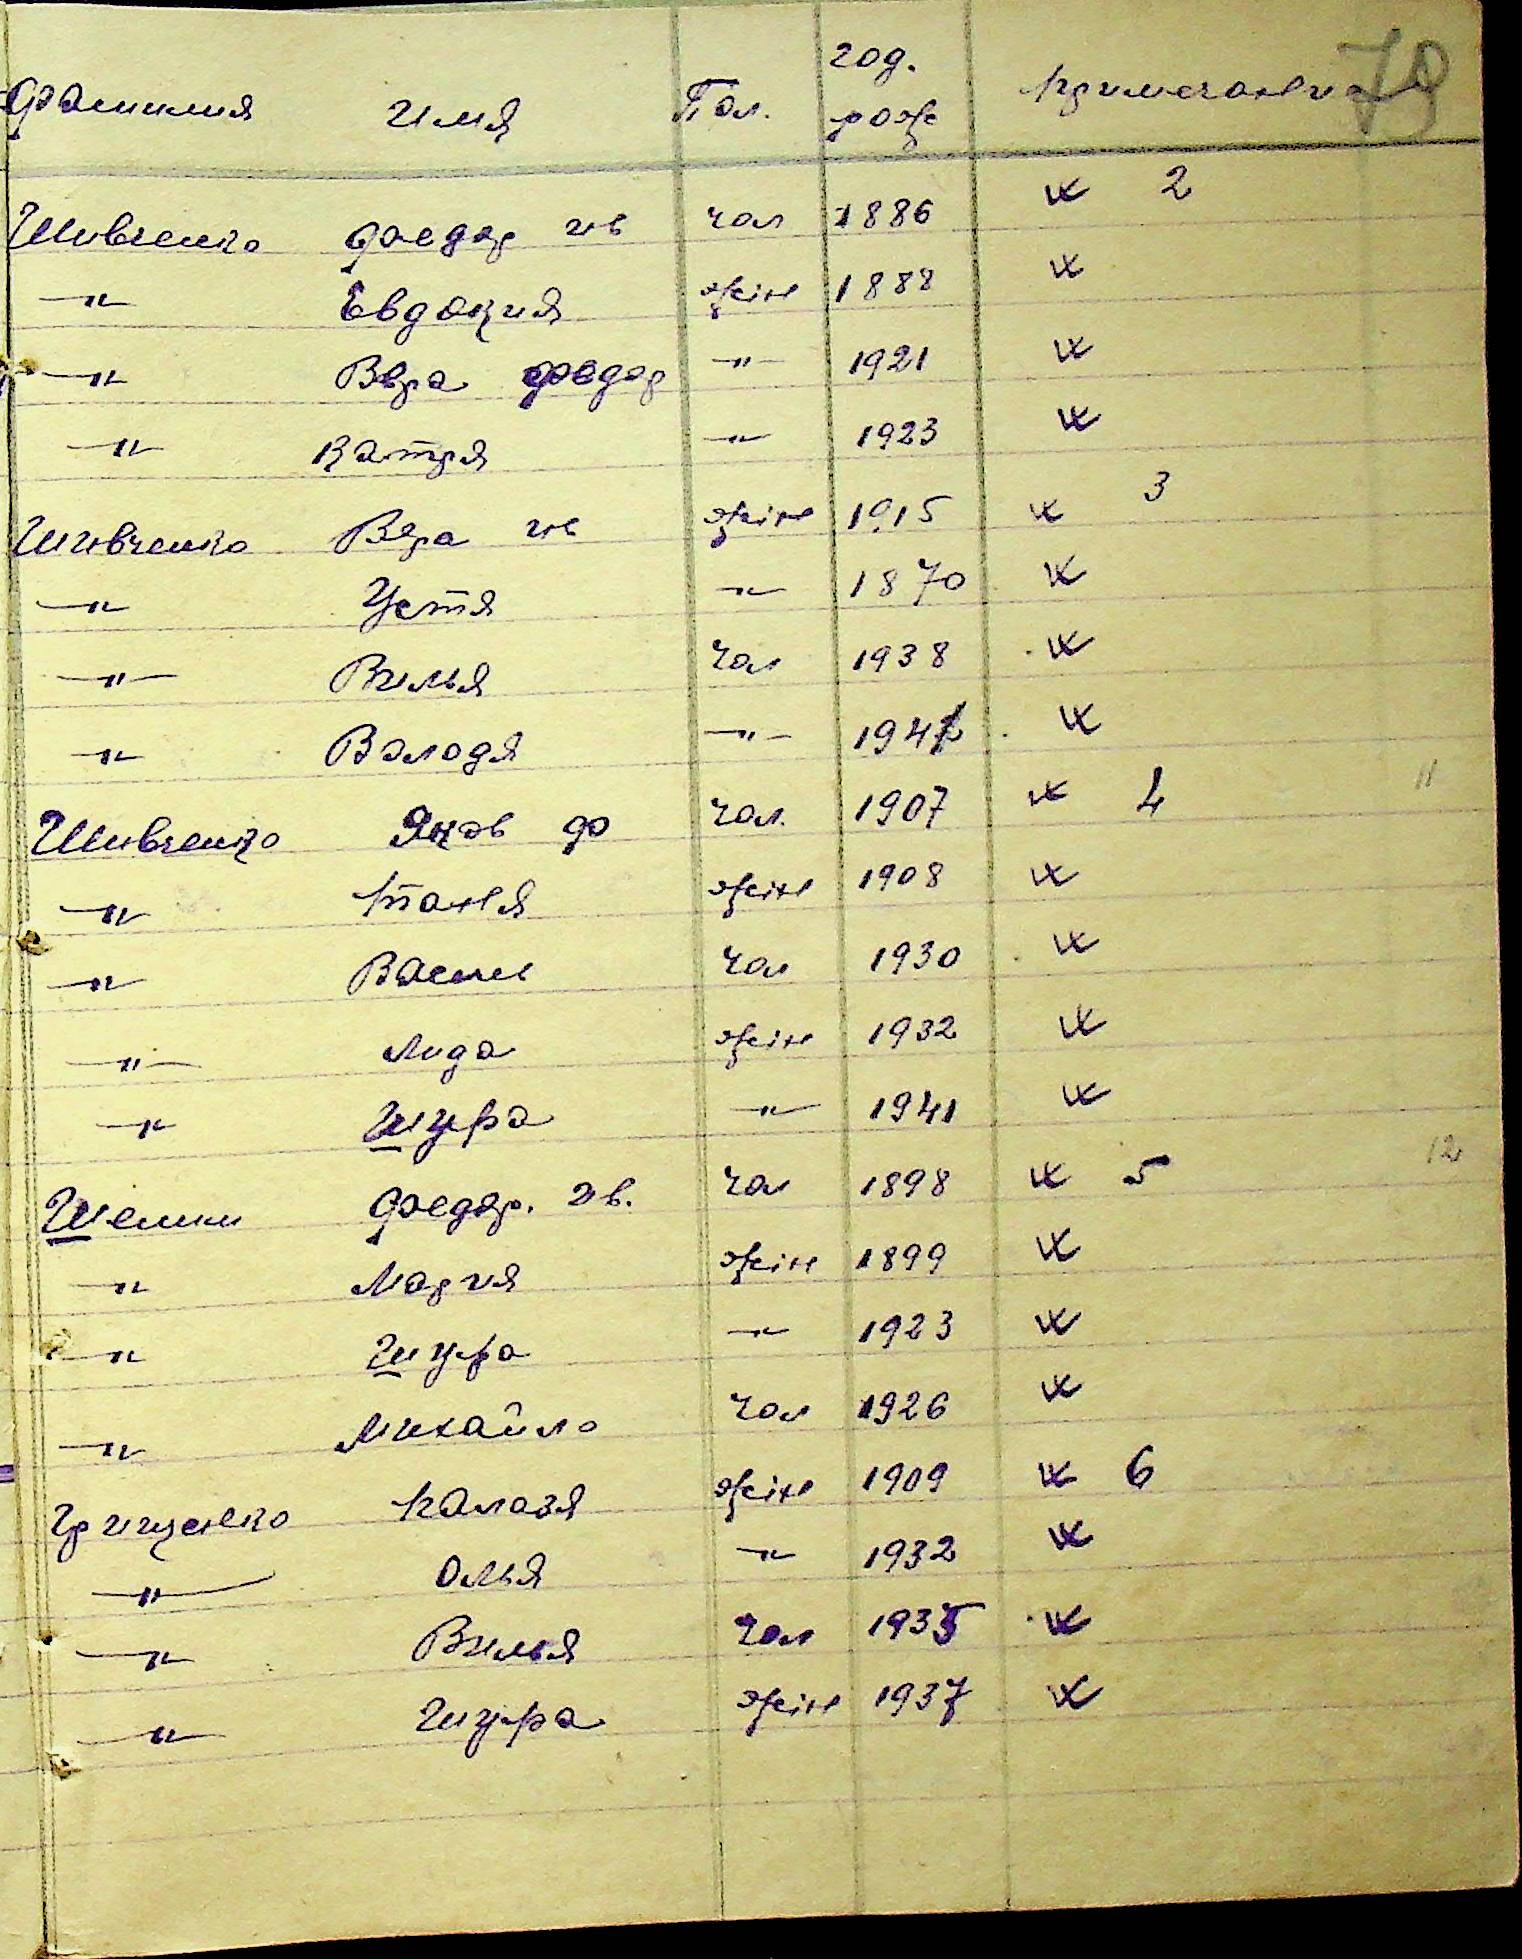 79
Фамилия имя Пол. год. рожд примечания
Шевченко Федор ив чол 1886 2
—"— Евдокия жін 1888
—"— Вера федор —"— 1921
—"— Катря —"— 1923
Шевченко Вера ив жін 1915 3
—"— Устя —"— 1870
—"— Вилья чол 1938
—"— Володя —"—
Шевченко Яков ф чол. 1907 4 11
—"— Таня жін 1908
—"— Васил чол 1930
—"— Лида жін 1932
—"— Шура —"— 1941
Федор. Ив. чол 1898 5 12
—"— Мария жін 1899
—"— Шура —"— 1923
—"— Михайло чол 1926
Грищенко жін 1909 6
—"— Олья —"— 1932
—"— Вилья чол 1935
—"— Шура жін 1937